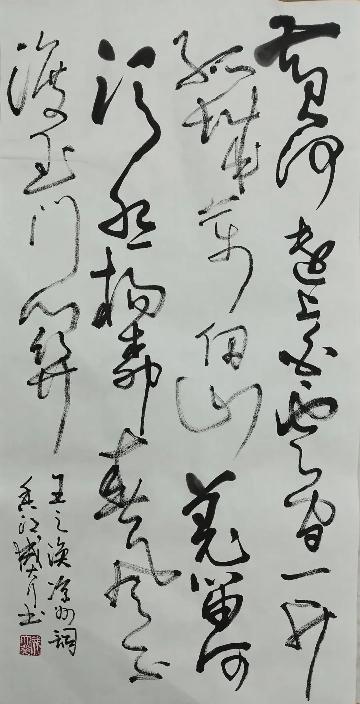 黄河远上白云间一片
孤城万仞山羌笛何
须怨杨柳春风不
渡玉门关
王之涣凉州词
书